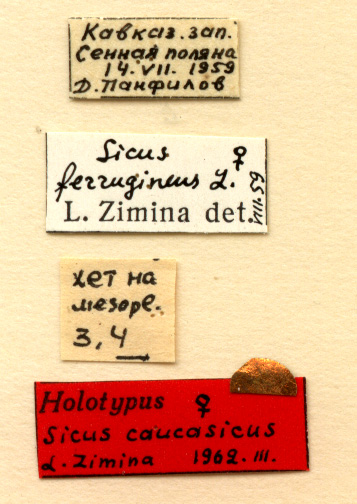 Кавказ. зап.
Сенная поляна
14.VII. 1959
Д. Панфилов
Sicus ♀
ferrugineus L.
L. Zimina det.
VIII-59
хет на
мезопл.
3, 4
Holotypus ♀
Sicus caucasicus
L. Zimina 1962. III.